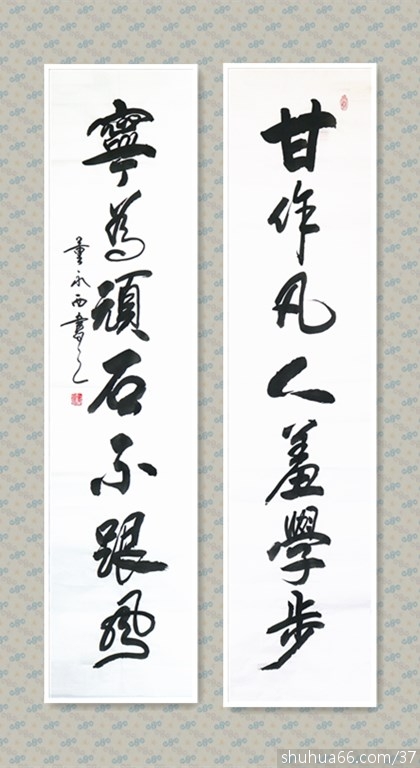 甘作凡人羞學步
寧為頑石不跟風
董永西書之
shuhua66.com/37